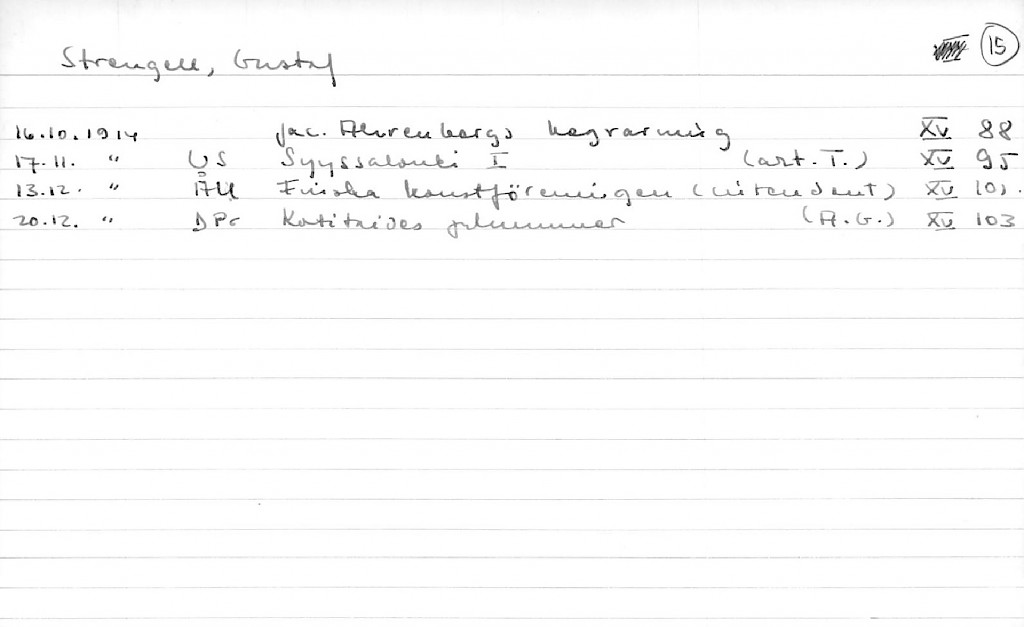 Strengell, Gustaf 15
16.10.1914 Jac. Ahrenbergs begravning XV 88
17.11. " US Syyssalonki I (art. T.) XV 95
13.12. " ÅU Finska konstföreningen (intendent) XV 101.
20.12. " DPr Kotitaides julnummer (A.G.) XV 103